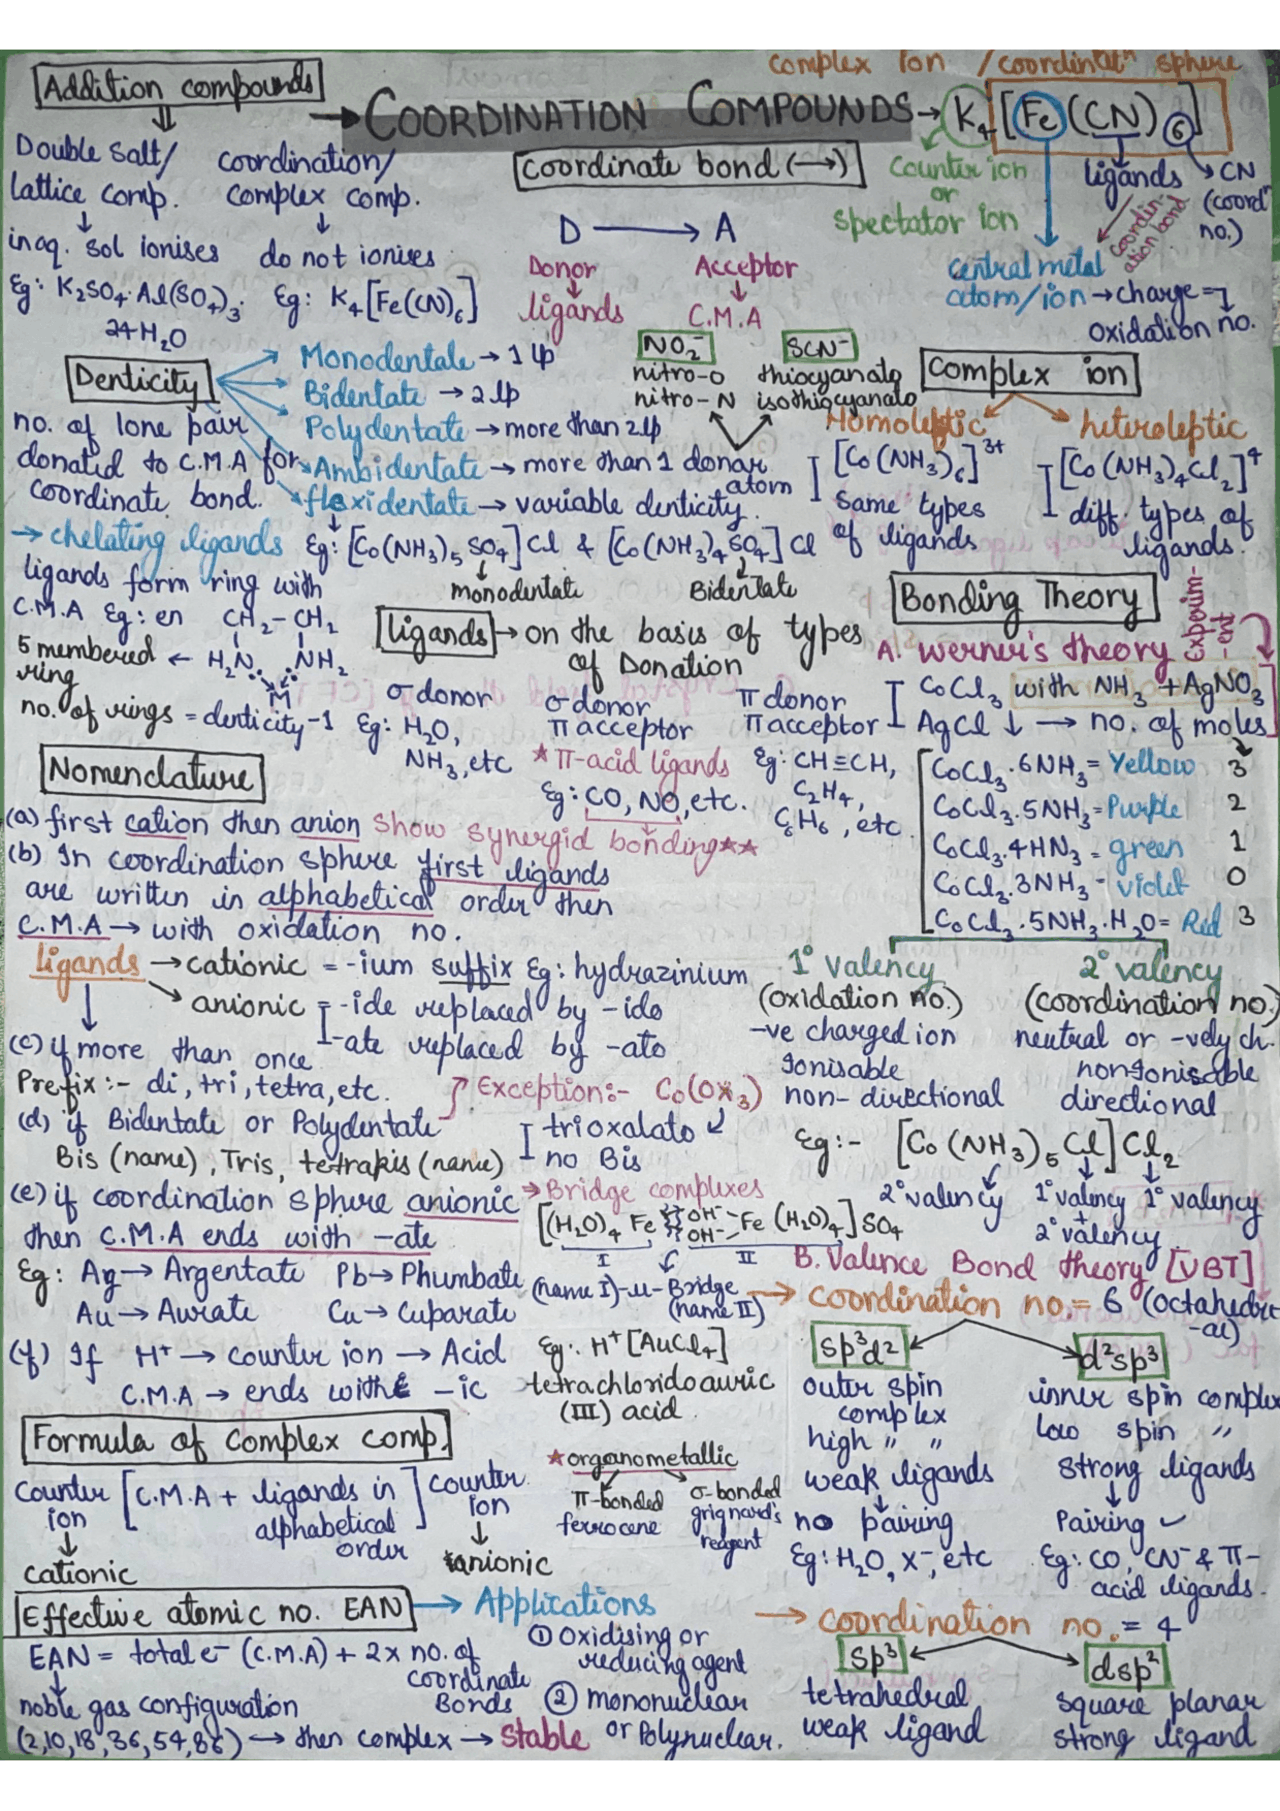 complex Ion / coordinatn sphere
Addition compounds → COORDINATION COMPOUNDS → K4[Fe(CN)6]
Double salt/ lattice comp.
↓
in aq. sol ionises
Eg: K2SO4.Al(SO4)3.
24H2O
coordination/ complex comp.
↓
do not ionises
Eg: K4[Fe(CN)6]
Coordinate bond (→)
D → A
Donor Acceptor
↓ ↓
ligands C.M.A
Counter ion
or
spectator ion
ligands
coordin-
ation bond
CN
(coordn
no.)
central metal
atom/ion → charge =
oxidation no.
Denticity
Monodentale → 1 lp
Bidentate → 2 lp
Polydentate → more than 2 lp
Ambidentate → more than 1 donar
atom
flexidentate → variable denticity.
no. of lone pair
donated to C.M.A for
coordinate bond.
NO2-
nitro-O
nitro-N
SCN-
thiocyanato
isothiocyanato
Complex ion
Homoleptic
[Co(NH3)6]3+
same types
of ligands
heteroleptic
[Co(NH3)4Cl2]+
diff. types of
ligands.
Eg: [Co(NH3)5 SO4]Cl & [Co(NH3)4 SO4] Cl
monodentate Bidentate
→ chelating ligands
ligands form ring with
C.M.A Eg: en CH2-CH2
5 membered ← H2N NH2
ring M
no. of rings = denticity-1
ligands → on the basis of types
of Donation
σ donor
Eg: H2O,
NH3, etc
σ donor
π acceptor
★ π-acid ligands
Eg: CO, NO, etc.
show synergid bonding★★
π donor
π acceptor
Eg: CH≡CH,
C2H4,
C6H6, etc
Bonding Theory
A. Werner's theory
Experim-
-ent
CoCl3 with NH3 + AgNO3
AgCl ↓ → no. of moles
CoCl3.6NH3 = Yellow 3
CoCl3.5NH3 = Purple 2
CoCl3.4HN3 = green 1
CoCl3.3NH3 - violet 0
CoCl3.5NH3.H2O = Red 3
1° valency
(oxidation no.)
-ve charged ion
Ionisable
non-directional
2° valency
(coordination no.)
neutral or -vely ch.
non Ionisable
directional
Eg:- [Co(NH3)5Cl]Cl2
2° valency
1° valency
+
2° valency
1° valency
Nomenclature
(a) first cation then anion
(b) In coordination sphere first ligands
are written in alphabetical order then
C.M.A → with oxidation no.
ligands → cationic = -ium suffix Eg: hydrazinium
→ anionic -ide replaced by -ido
-ate replaced by -ato
(c) if more than once
Prefix:- di, tri, tetra, etc.
(d) if Bidentate or Polydentate
Bis (name), Tris, tetrakis (name)
Exception:- Co(Ox3)
trioxalato
no Bis
(e) if coordination sphere anionic
then C.M.A ends with -ate
Eg: Ag → Argentate Pb → Phumbate
Au → Aurate Cu → Cuparate
→ Bridge complexes
[(H2O)4 Fe OH- OH- Fe (H2O)4] SO4
I II
(name I)-μ-Bridge
(name II)
(f) If H+ → counter ion → Acid
C.M.A → ends with -ic
Eg: H+[AuCl4]
tetrachloridoauric
(III) acid
Formula of Complex comp.
counter
ion
↓
cationic
[C.M.A + ligands in
alphabetical
order]
counter
ion
↓
anionic
★ organometallic
π-bonded
ferrocene
σ-bonded
grignard's
reagent
Effective atomic no. EAN
EAN = total e- (C.M.A) + 2 x no. of
coordinate
Bonds
noble gas configuration
(2,10,18,36,54,86) → then complex → stable
→ Applications
① Oxidising or
reducing agent
② mononuclear
or Polynuclear.
B. Valence Bond theory [VBT]
→ coordination no. = 6 (octahedr
-al)
sp3d2
outer spin
complex
high " "
weak ligands
↓
no pairing
Eg: H2O, X-, etc
d2sp3
inner spin complex
low spin "
strong ligands
↓
Pairing ✓
Eg: CO, CN- & π-
acid ligands.
→ coordination no. = 4
sp3
tetrahedral
weak ligand
dsp2
square planar
strong ligand